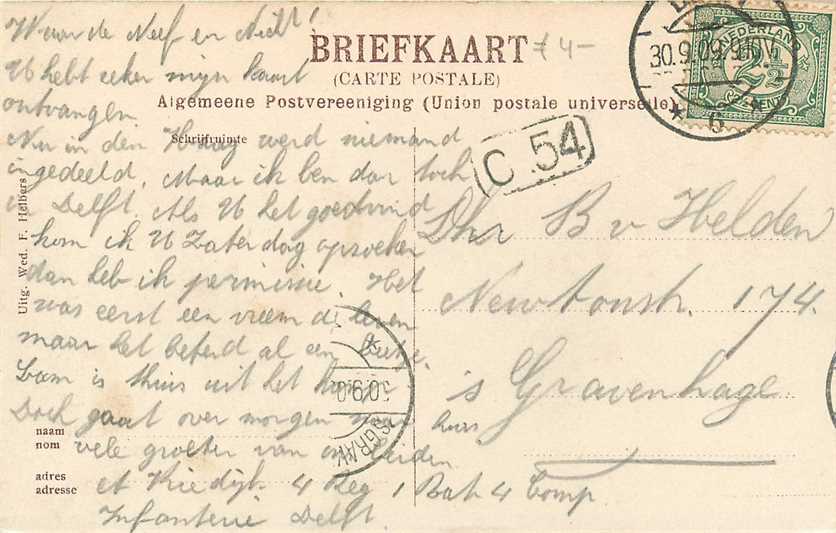 BRIEFKAART
(CARTE POSTALE)
Algemeene Postvereeniging (Union postale universelle)
Schrijfruimte
£ 4-
NEDERLAND
2½
CENT
30.9.09 9-10V
6
C 54
Waarde Neef en Nicht!
U hebt zeker mijn kaart
ontvangen
Nu in den Haag werd niemand
ingedeeld. Maar ik ben dan toch
in Delft. Als U het goedvind
kom ik U Zaterdag opzoeken
dan heb ik permissie. Het
was eerst een vreemd leven
maar het beterd al een beetje.
is thuis uit het
Doch gaat over morgen naar huis
vele groeten van
Riedijk 4 Reg 1 Bat 4 Comp
Infanterie Delft.
Dhr B v Helden
Newtonstr. 174.
s Gravenhage
30.9.0
SGRAV
naam
nom
adres
adresse
Uitg. Wed. F. Helbers